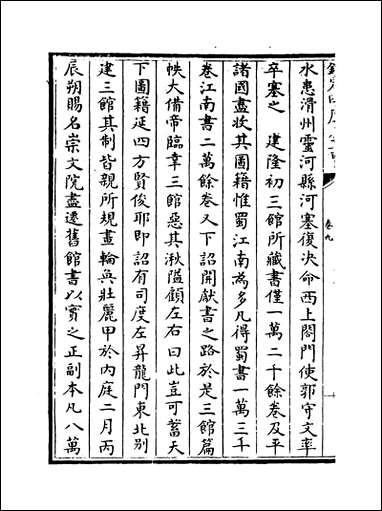 水患滑州靈河縣河塞復決命西上閤門使郭守文率
卒塞之　建隆初三館所藏書僅一萬二千餘卷及平
諸國盡收其圖籍惟蜀江南為多凡得蜀書一萬三千
卷江南書二萬餘卷又下詔開獻書之路於是三館篇
帙大備帝臨幸三館惡其湫隘顧左右曰此豈可蓄天
下圖籍延四方賢俊耶即詔有司度左昇龍門東北别
建三館其制皆親所規畫輪奐壯麗甲於内庭二月丙
辰朔賜名崇文院盡遷舊館書以實之正副本凡八萬
卷九